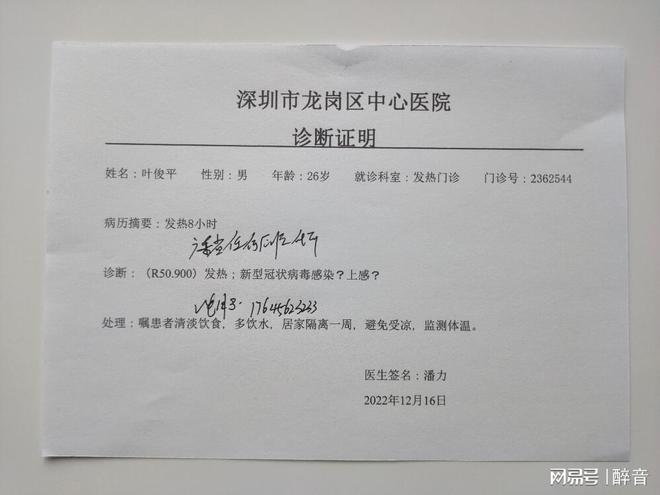 深圳市龙岗区中心医院
诊断证明
姓名：叶俊平 性别：男 年龄：26岁 就诊科室：发热门诊 门诊号：2362544
病历摘要：发热8小时
诊断：（R50.900）发热；新型冠状病毒感染？上感？
处理：嘱患者清淡饮食，多饮水，居家隔离一周，避免受凉，监测体温。
医生签名：潘力
2022年12月16日
网易号 | 醉音